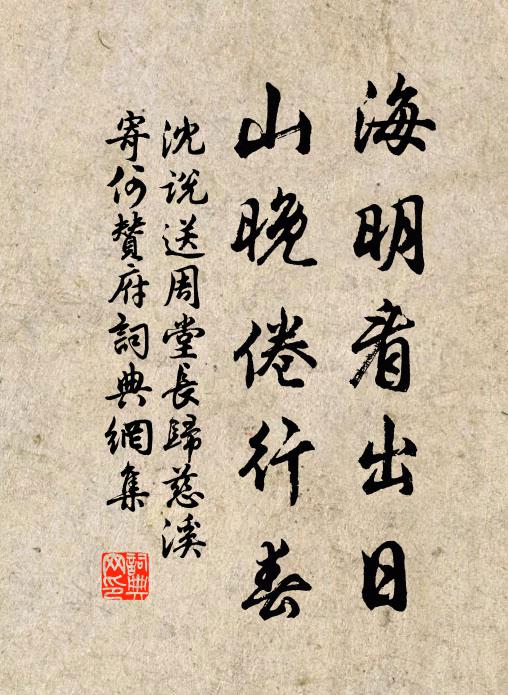 海明看出日
山晚倦行春
沈說送周堂長歸慈溪
寄何贊府詞典網集
詞典網印